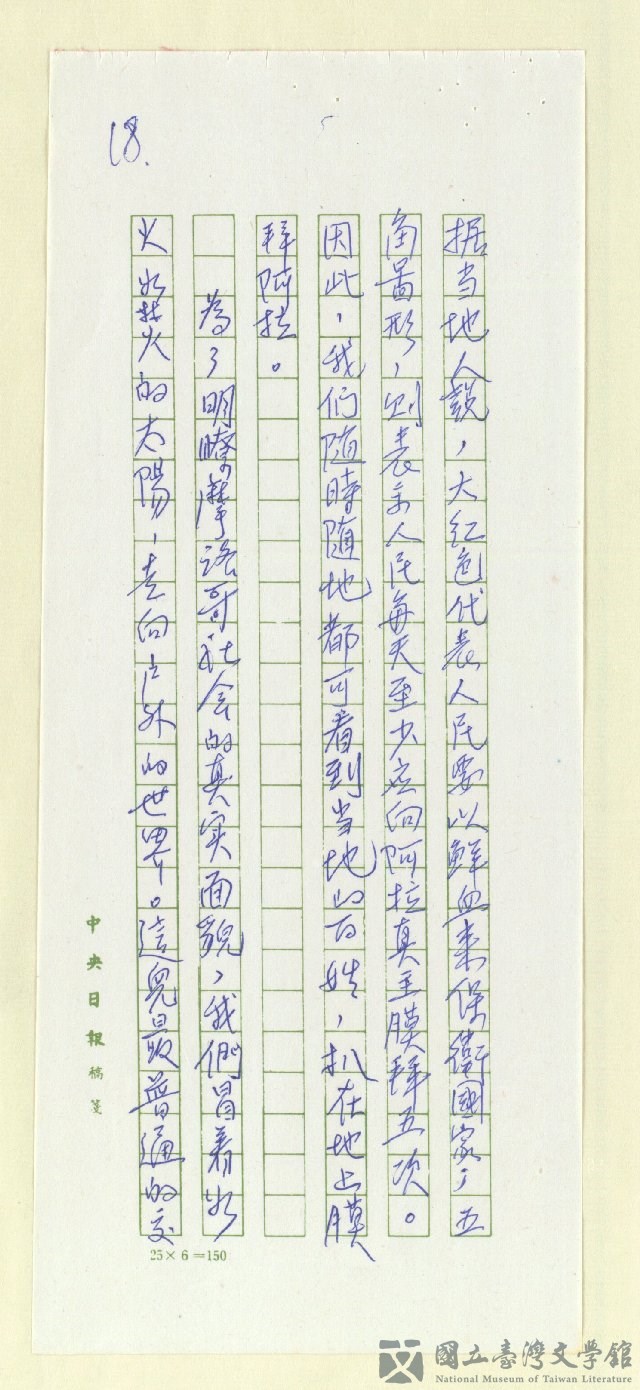 18.
据当地人說，大红色代表人民要以鮮血來保衛國家，五
角啚形，则表示人民每天至少应向阿拉真主膜拜五次。
因此，我们随時随地都可看到当地的百姓，扒在地上膜
拜阿拉。
為了明瞭摩洛哥社会的真实面貌，我們冒着如
火如焚火的太陽，走向户外的世界。這兒最普通的交
中央日報稿箋
25×6=150
國立臺灣文學館
National Museum of Taiwan Literature